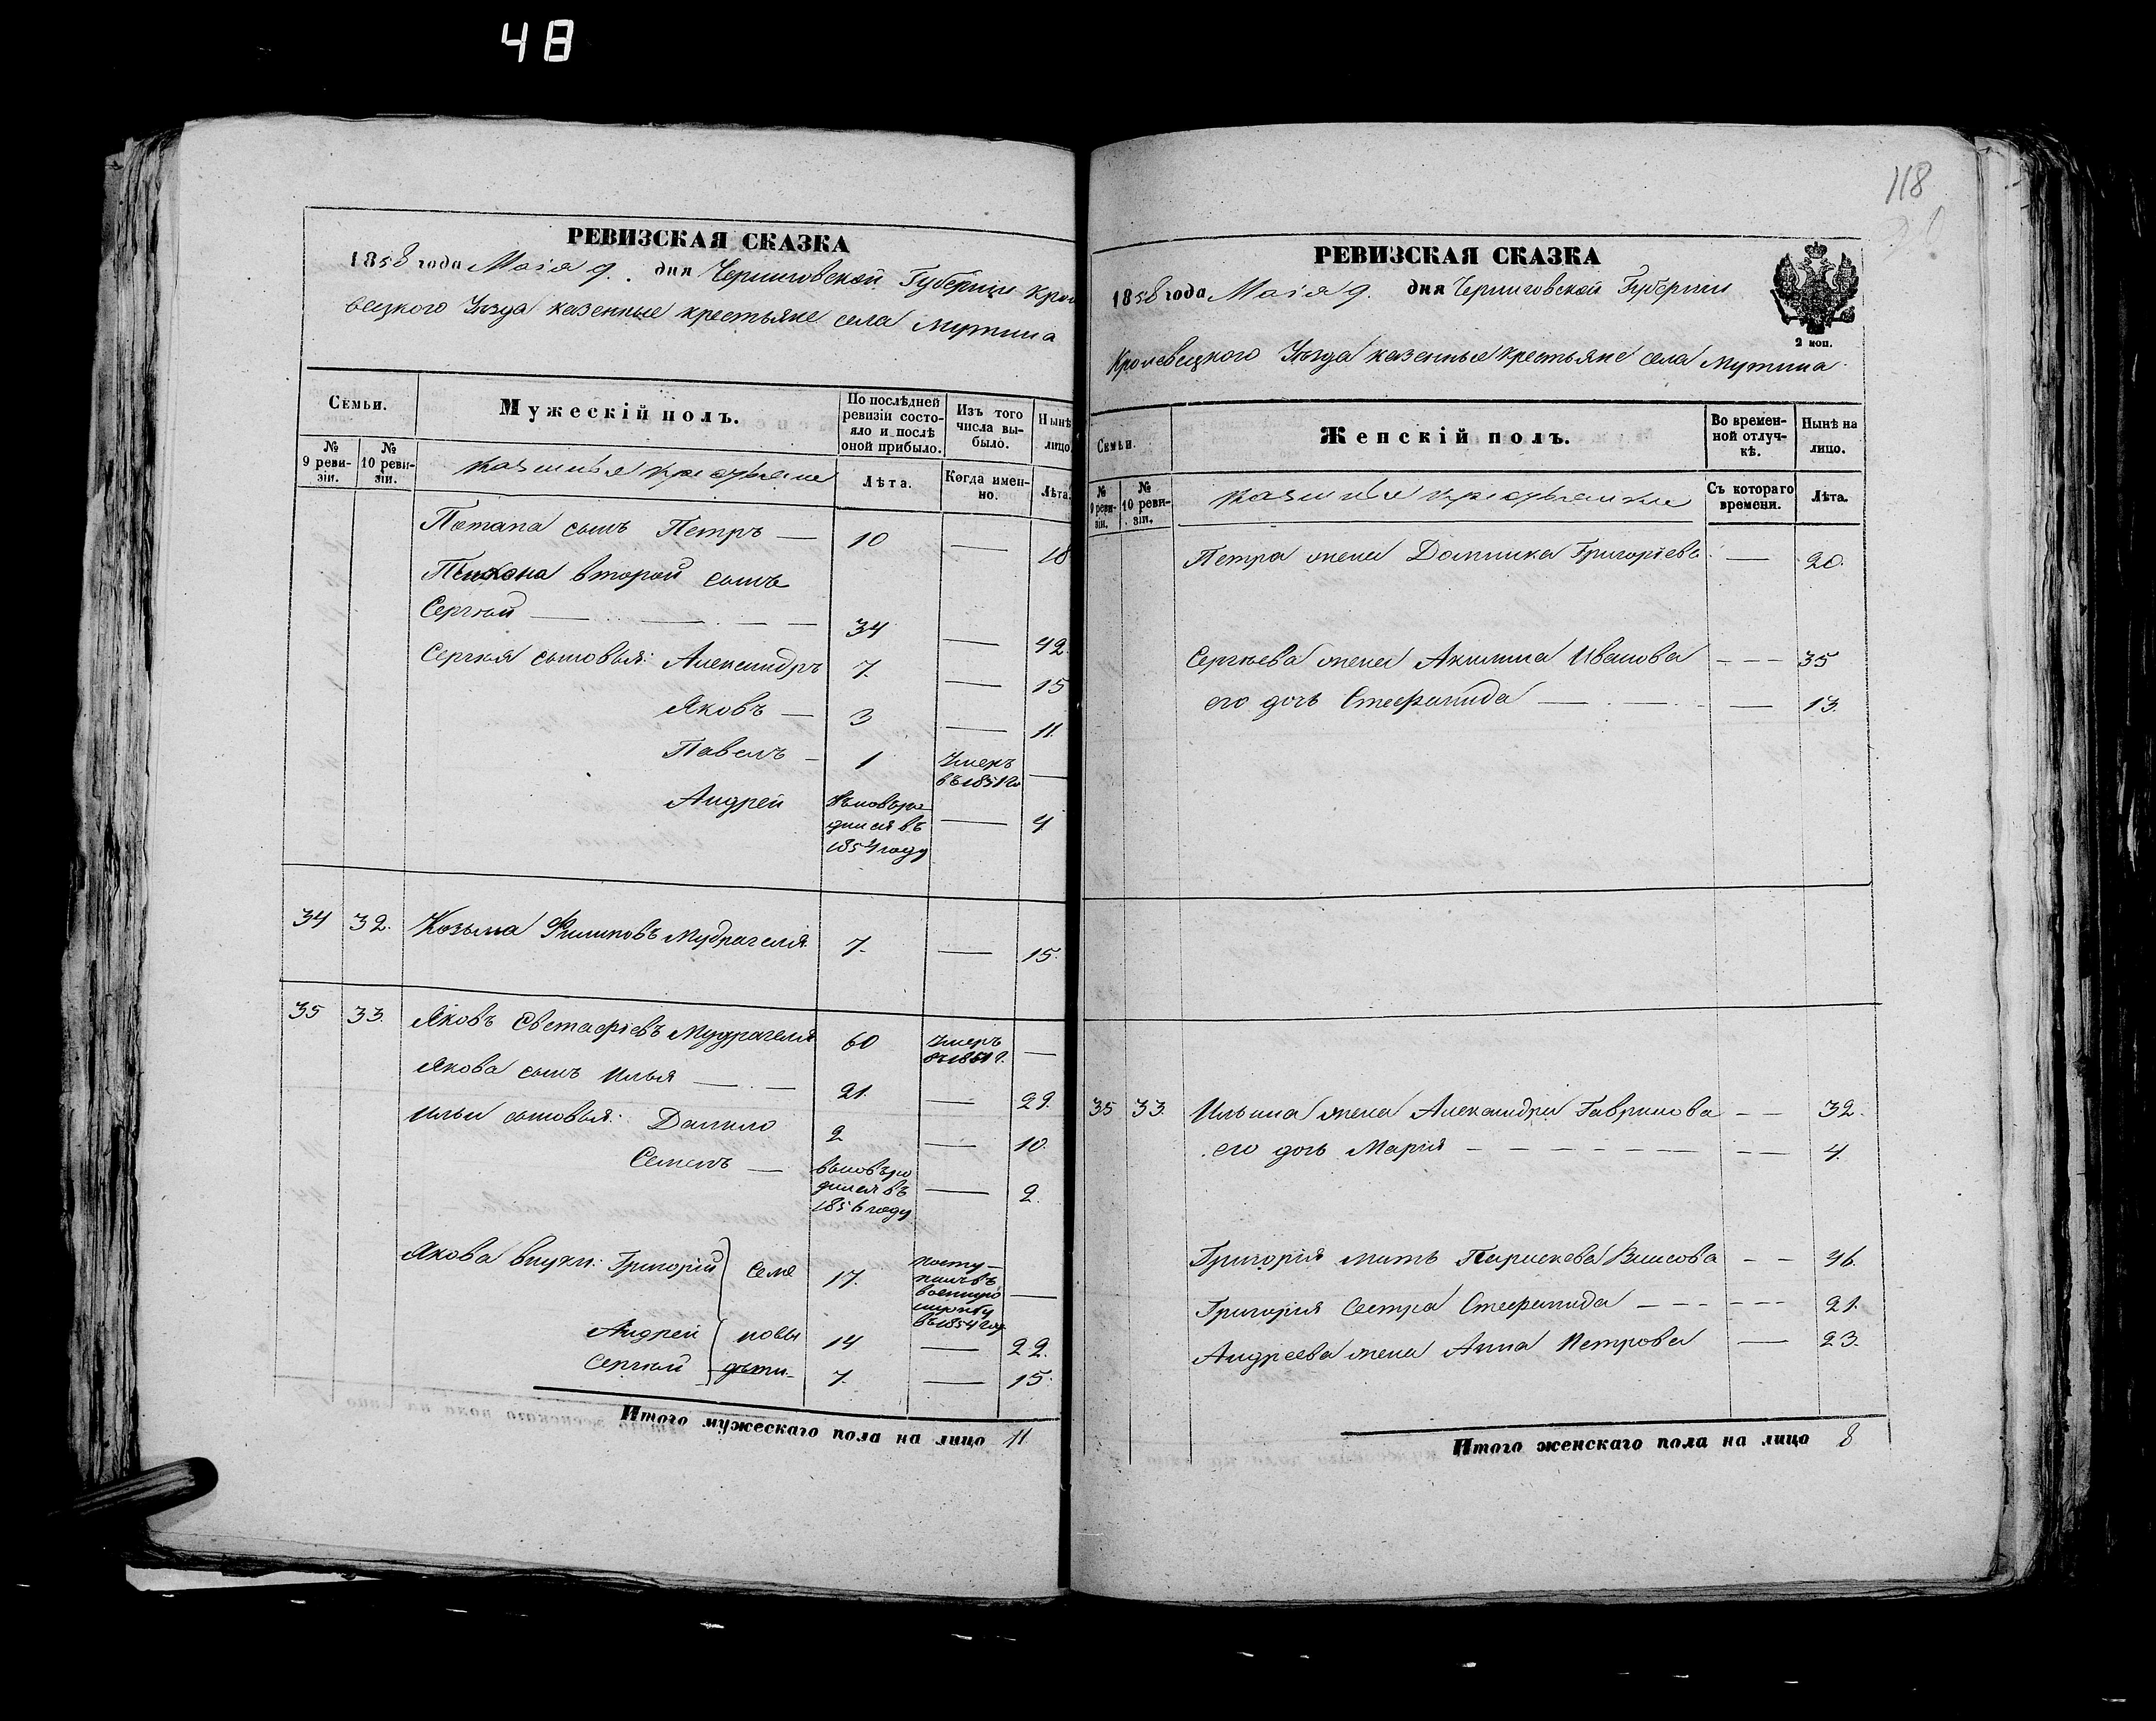 48
РЕВИЗСКАЯ СКАЗКА
1858 года Маія 9. дня Черниговской Губерніи Кроле
вецкого Уѣзда казенные крестьяне села Мутина
Семьи.
Мужескій полъ.
По послѣдней ревизіи состо-
яло и послѣ
оной прибыло.
Изъ того
числа вы-
было.
Нынѣ
лицо
№
9 реви-
зіи.
№
10 реви-
зіи.
казенныя крестьяне
Лѣта.
Когда имен-
но.
Лѣта.
Потапа сынъ Петръ — 10 — 18
Тихона второй сынъ
Сергѣй — 34 — 42.
Сергѣя сыновья: Александръ 7. — 15
Яковъ — 3 — 11.
Павелъ — 1 Умеръ
въ 1851 го —
Андрей вновьро
дился въ
1854 году — 4
34 32. Козьма Филиповъ Мудрагеля 7. — 15.
35 33. Яковъ Евстафіевъ Мудрагеля 60 Умеръ
въ 1851 г. —
Якова сынъ Илья — 21. — 29.
Ильи сыновья: Данило 2 — 10.
Семенъ — вновьро
дился въ
1856 году — 2.
Якова внуки: Григорій Семе 17. посту-
пилъ въ
военную
службу
въ 1854 год —
Андрей новы 14 — 22.
Сергѣй дѣти. 7. — 15.
Итого мужескаго пола на лицо 11
118
РЕВИЗСКАЯ СКАЗКА
1858 года Маія 9. дня Черниговской Губерніи
2 коп.
Кролевецкого Уѣзда казенные крестьяне села Мутина.
Семьи.
Женскій полъ.
Во времен-
ной отлуч-
кѣ.
Нынѣ на
лицо.
№
9 реви-
зіи.
№
10 реви-
зіи.
казенныя крестьянки
Съ котораго
времени.
Лѣта.
Петра жена Домника Григоріева — 20.
Сергѣева жена Акилина Иванова - - - 35
его дочь Стефанида — — 13.
35 33. Ильина жена Александра Гаврилова - - 32.
его дочь Марія - - - - 4.
Григорія мать Параскева Власова - - 46.
Григорія Сестра Стефанида - - - 21.
Андреева жена Анна Петрова — 23.
Итого женскаго пола на лицо 8